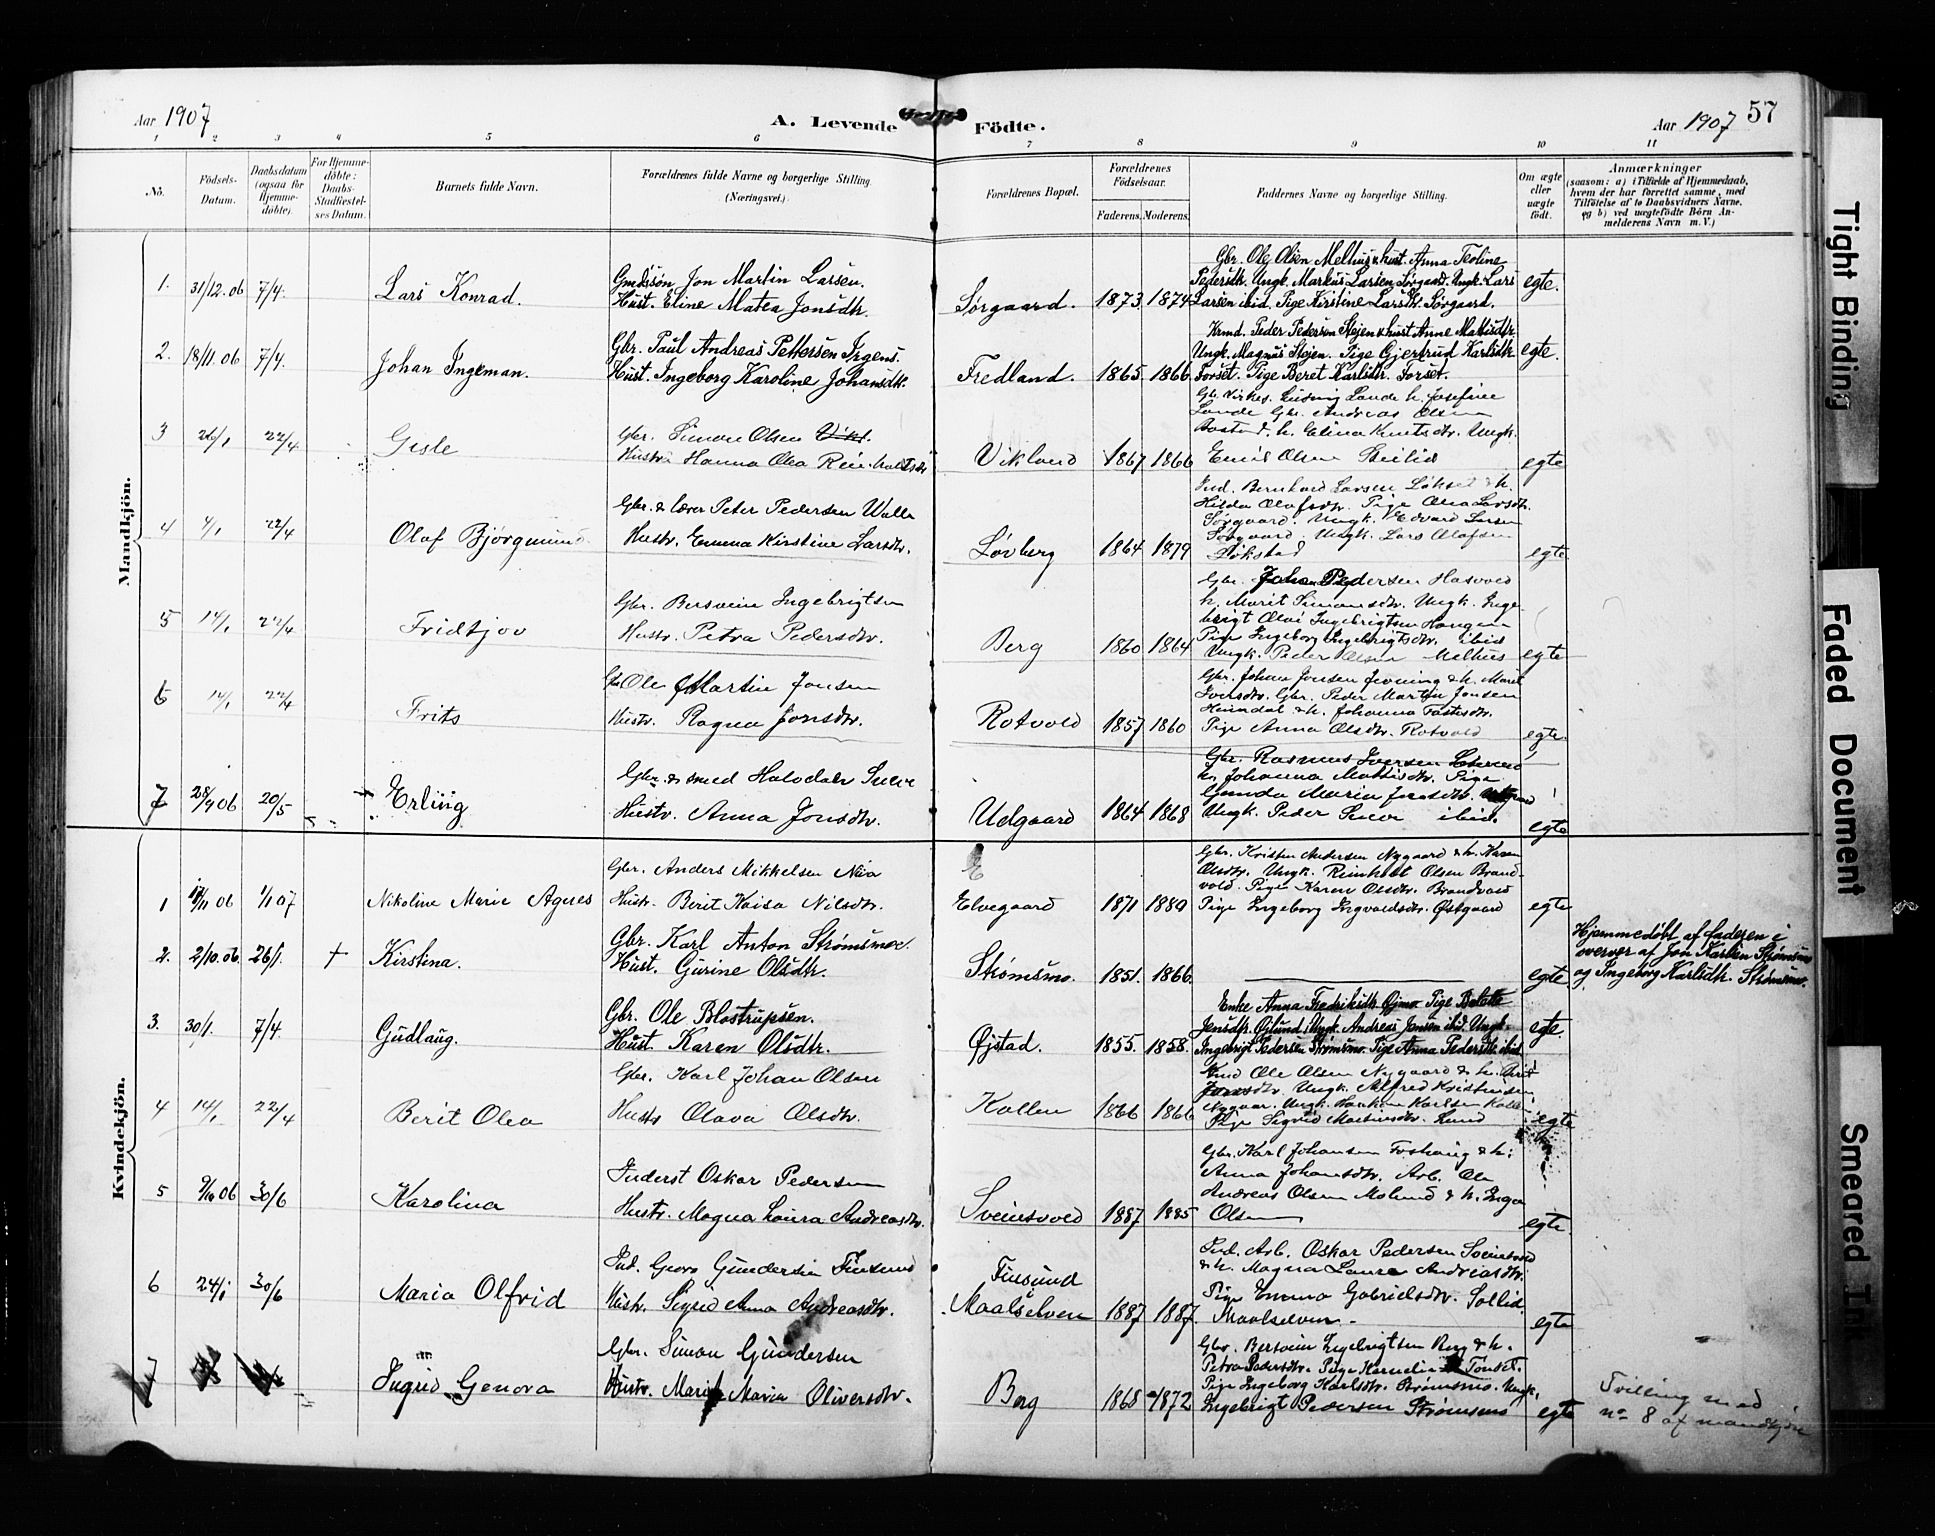 Aar 1907
A. Levende Födte.
Aar 1907 57
1 2 3 4 5 6 7 8 9 10 11
No.
Födsels-Datum.
Daabsdatum (ogsaa for Hjemme-döbte).
For Hjemme-döbte: Daabs-Stadfæstel-ses Datum.
Barnets fulde Navn.
Forældrenes fulde Navne og borgerlige Stilling. (Næringsvei.)
Forældrenes Bopæl.
Forældrenes Födselsaar.
Faderens. Moderens.
Faddernes Navne og borgerlige Stilling.
Om ægte eller uægte födt.
Anmærkninger
(saasom: a) i Tilfælde af Hjemmedaab,
hvem der har forrettet samme, med
Tilföielse af to Daabsvidners Navne,
og b) ved uægtefödte Börn An-
melderens Navn m. V.)
Mandkjön.
1. 31/12.06 7/4. Lars Konrad. Gmdssøn Jon Martin Larsen.
Hust. Eline Matea Jonsdtr. Sørgaard. 1873. 1874 egte.
Gbr. Ole Olsen Melhus & hust. Anna Teoline
Pedersdtr. Ungk. Markus Larsen Sørgaard. Ungk. Lars
Larsen ibid. Pige Kirstine Larsdtr. Sørgaard.
2. 18/11.06 7/4. Johan Ingeman. Gbr. Paul Andreas Pettersen Irgens.
Hust. Ingeborg Karoline Johansdtr. Fredland. 1865. 1866 egte.
Krmd. Peder Pedersen Stejen & hust Anne Mathisdtr.
Ungk. Magnus Stejen. Pige Gjertrud Karlsdtr.
Forset. Pige Beret Karlsdtr. Forset.
3 26/1 22/4 Gisle Gbr. Simon Olsen
Hustr. Hanna Olea Vikland 1867 1866 egte
Lande Gbr. Andreas Olsen
h. Elina Knutsdtr. Ungk.
Emil Olsen
4 4/1 22/4 Olaf Bjørgmund Gbr. & lærer Peter Pedersen Walle
Hustr. Emma Kirstine Larsdtr. Løvberg 1864 1879 egte
Ind. Bernhard Larsen
Hilda Olafsdtr. Pige Olea Larsdtr.
Sørgaard. Ungk. Edvard Larsen
Sørgaard. Ungk. Lars Olafsen
Løkstad
5 14/1 22/4 Fridtjov Gbr. Bersvein Ingebrigtsen
Hustr. Petra Pedersdtr. Berg 1860 1864 egte
Gbr. Johan Pedersen
h. Marit Simonsdtr. Ungk. Inge-
brigt Olai Ingebrigtsen Haugen
Pige Ingeborg Ingebrigtsdtr. ibid
Ungk. Peder Olsen Melhus
6 14/1 22/4 Frits Gbr Ole Martin Jonsen
Hustr. Ragna Jonsdtr. Rotvold 1857 1860 egte.
Gbr. Johan Jonsen & h. Marit
Gbr. Peder Martin Jonsen
& h. Johanna
Pige Anna Olsdtr. Rotvold
7 06 20/5 Erling Gbr. & smed Halvdah
Hustr. Anna Jonsdtr. Udgaard 1864 1868 egte
Gbr. Rasmus Iversen
h. Johanna Mattisdtr. Pige
Gunda Maria Jonsdtr.
Ungk. Peder ibid.
Kvindekjön.
1 06 1/1 07 Nikoline Marie Agnes Gbr. Anders Mikkelsen
Hustr. Berit Kaisa Nilsdtr. Elvegaard 1871 1880 egte
Gbr. Kristen Andersen Nygaard & h. Karen
Olsdtr. Ungk. Reinholt Olsen Brand-
vold. Pige Karen Olsdtr. Brandvold
Pige Ingeborg Ingvaldsdtr. Østgaard
2. 2/10.06. 26/1. + Kirstina. Gbr. Karl Anton Strømsmoe.
Hust. Gurine Olsdtr. Strømsmo. 1851. 1866. egte
Hjemmedøbt af faderen i
overvær af Jon Karlsen Strømsmo
og Ingeborg Karlsdtr. Strømsmo.
3. 30/1. 7/4 Gudlaug. Gbr. Ole Blostrupsen.
Hust. Karen Olsdtr. Øjstad. 1855. 1858. egte.
Enke Anna Fredriksdtr. Øjmo. Pige Bolette
Jensdtr. Øjlund, Ungk. Andreas Jensen ibid. Ungk.
Ingebrigt Pedersen Strømsmo. Pige Anna Pedersdtr. ibid
4 14/1 22/4 Berit Olea Gbr. Karl Johan Olsen
Hustr Olava Olsdtr. Kollen 1866 1866 egte
Ole Olsen Nygaard & h. Berit
Jonsdtr. Ungk. Alfred Kristensen
Ungk. Karlsen
Pige Sigrid Mortensdtr. Lund
5 06 30/6 Karolina Inderst Oskar Pedersen
Hustr. Magna Laura Andreasdtr. Sveinsvold 1887 1885 egte
Gbr. Karl Johansen Foshaug & h.
Anna Johansdtr. Arb. Ole
Andreas Olsen Molund & h. Inga
Olsen
6 24/1 30/6 Maria Olfrid Ind. Georg Gundersen Finsund
Hustr. Sigrid Anna Andreasdtr. Finsund
Maalselven 1887 1887 egte
Ind. Arb. Oskar Pedersen Sveinsvold
& h. Magna Laura Andreasdtr.
Pige Emma Gabrielsdtr. Sollid
Maalselven
7 Ingrid Genora Gbr. Simon Gundersen
Hustr. Marit Maria Oliversdtr. Berg 1868 1872 egte
Gbr. Bersvein Ingebrigtsen Berg & h.
Petra Pedersdtr. Pige Kornelia Tønset.
Pige Ingeborg Karlsdtr. Strømsmo. Ungk.
Ingebrigt Pedersen Strømsmo
Tvilling med
no 8 af mandkjøn
Tight Binding
Faded Document
Smeared Ink